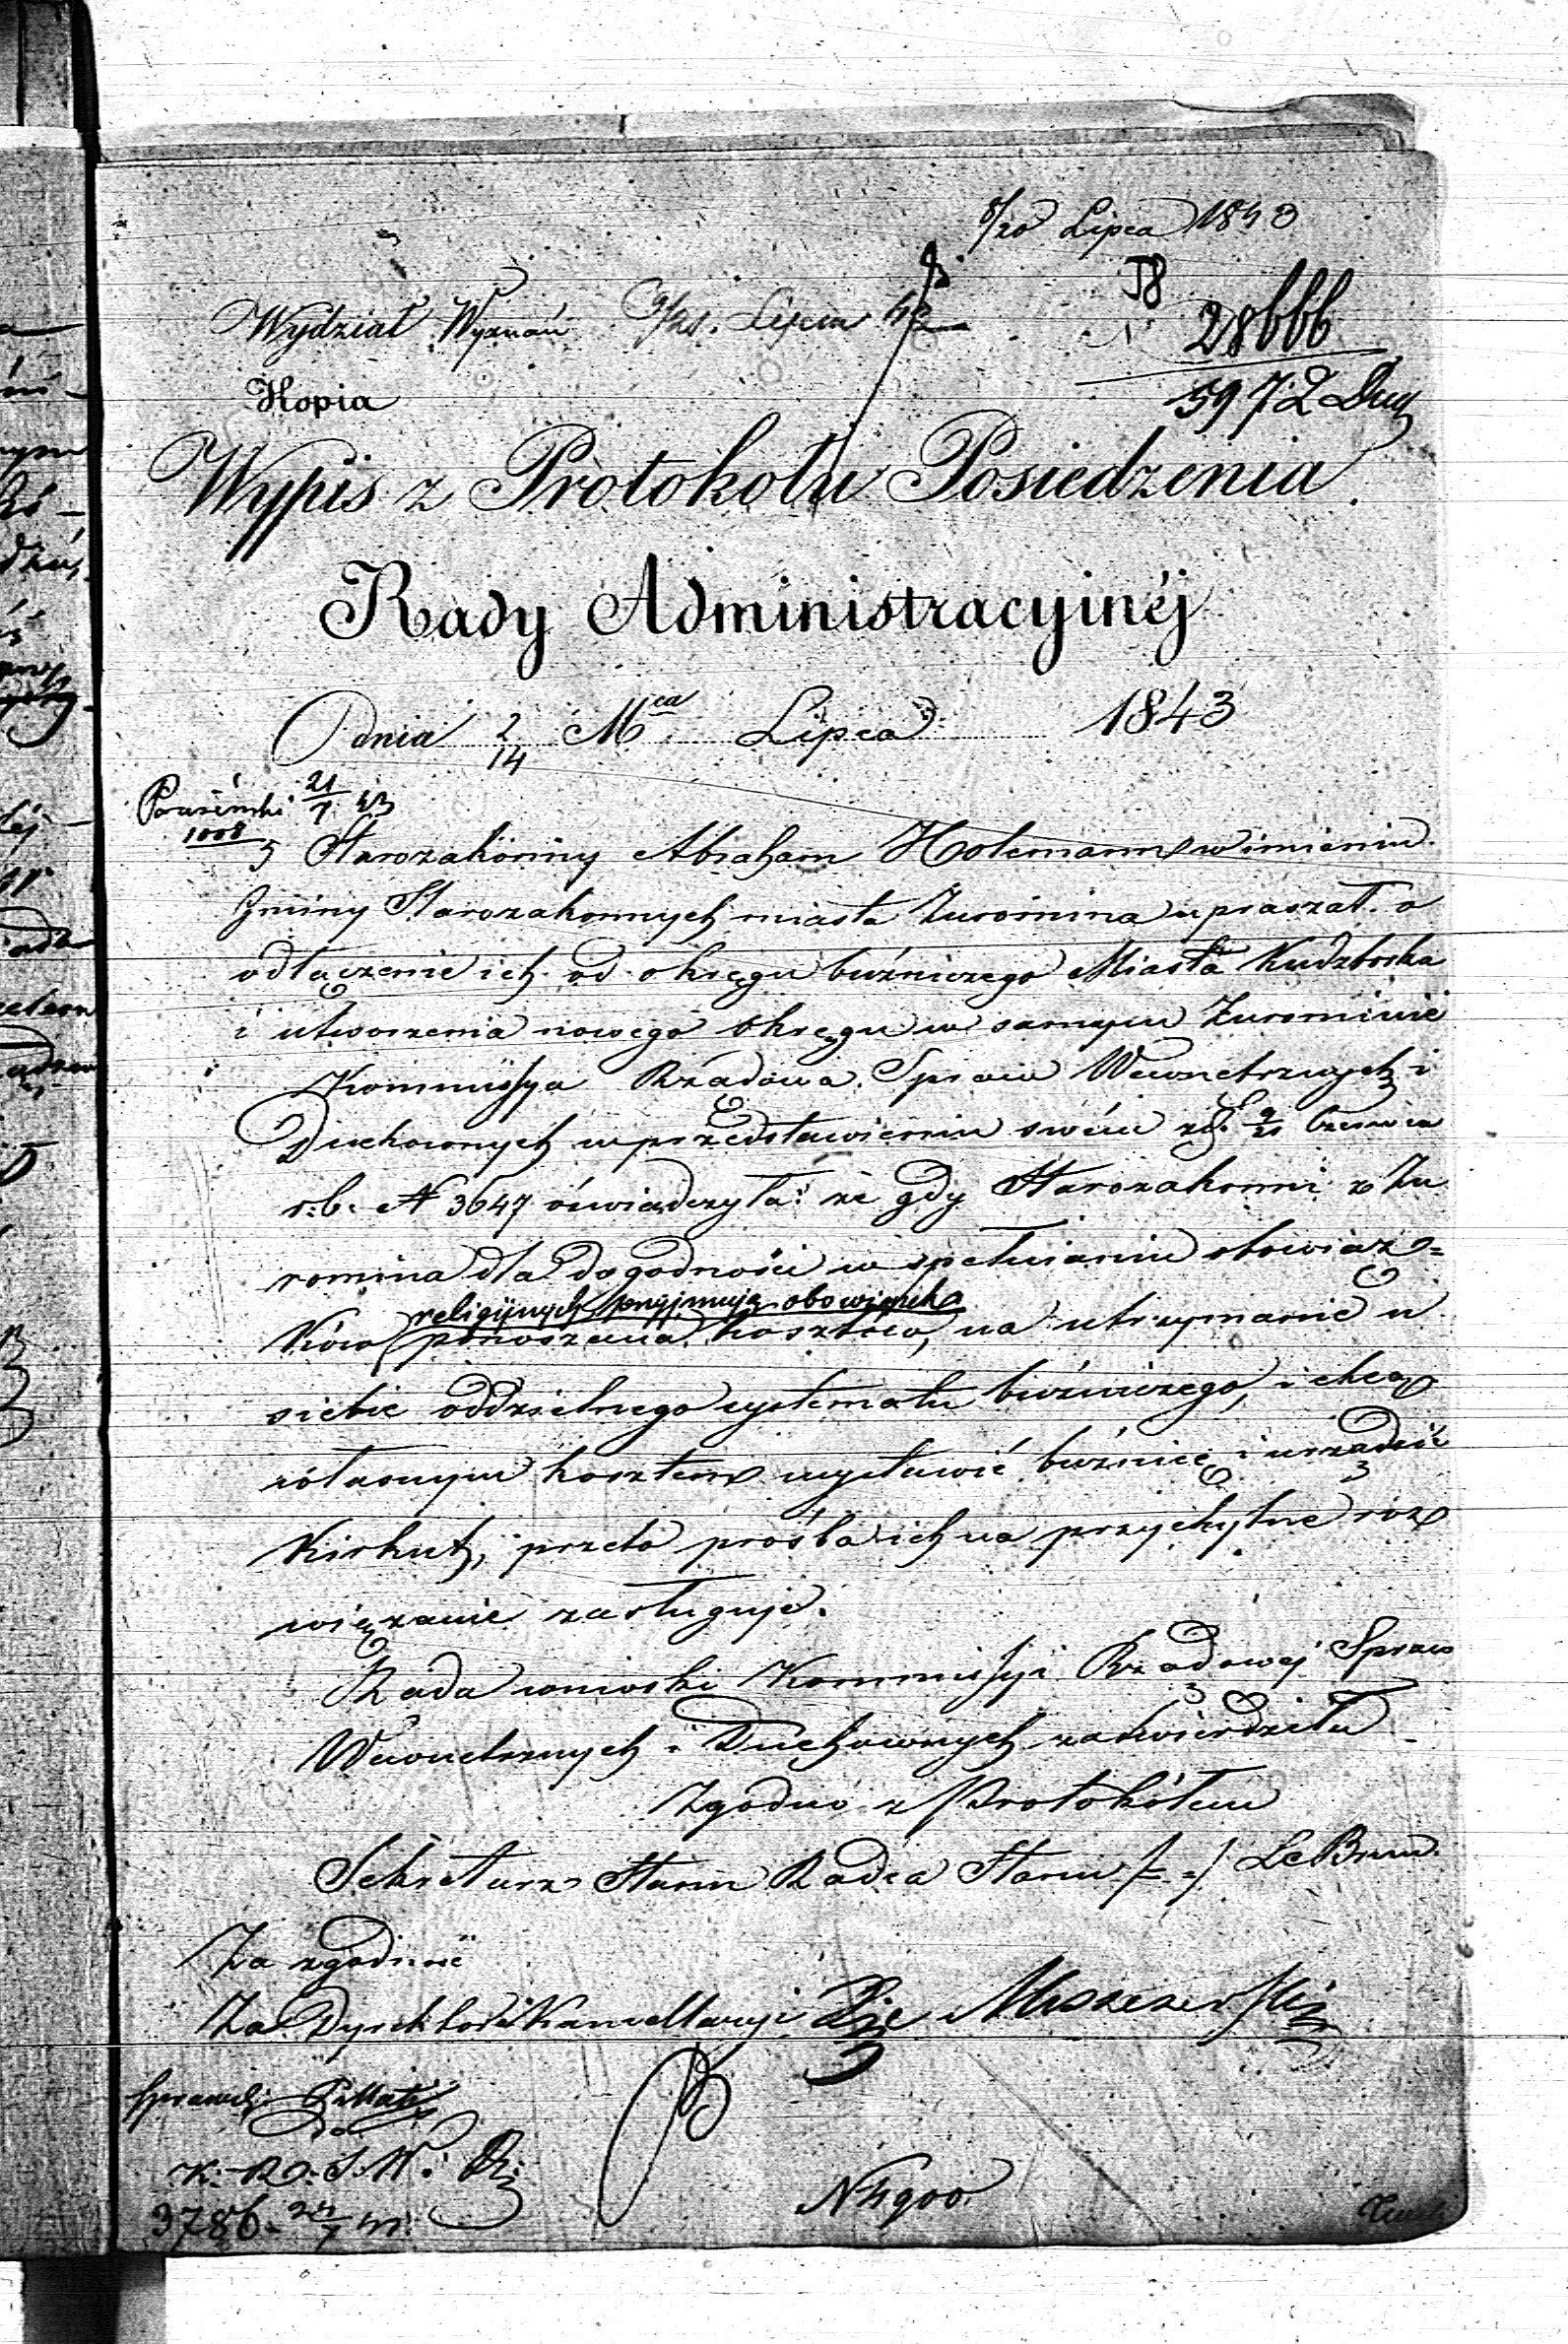 8/20 Lipca 1843
Wydział Wyznań 9/21. Lipca 43
58
N 28666
5972 Duch
Kopia
Wypis z Protokołu Posiedzenia
Rady Administracyinéj
Dnia 2/14 Mca Lipca 1843
21/7 43
1008
5 Starozakonny Abraham Holcmann w imieniu
Gminy Starozakonnych miasta Żuromina upraszał o
odłączenie ich od okręgu bużniczego Miasta Kudzborka
i utworzenia nowego okręgu w samym Żurominie
Kommissya Rządowa Spraw Wewnetrznych i
Duchownych w przedstawieniu swém z d. 9/21 Czerwca
r: b: N 3647 oświadczyła: że gdy Starozakonni z Żu
romina dla dogodności w spełnianiu obowiąz=
ków religijnych przyjmują obowiązek
ponoszenia kosztów, na utrzymanie u
siebie oddzielnego systematu bużniczego, i chcą
własnym kosztem wystawić bużnicę i urządzić
Kirkut, przeto prośba ich na przychylne roz
wiązanie zasługuje.
Rada wnioski Kommissyi Rządowej Spraw
Wewnetrznych i Duchownych zatwierdziła
Zgodno z Protokółem
Sekretarz Stanu Radca Stanu /-/ LeBrun
Za zgodność
Za Dyrektora Kancellaryi
do
K: R: S: W: D:
3786 24/7 43
N 4900